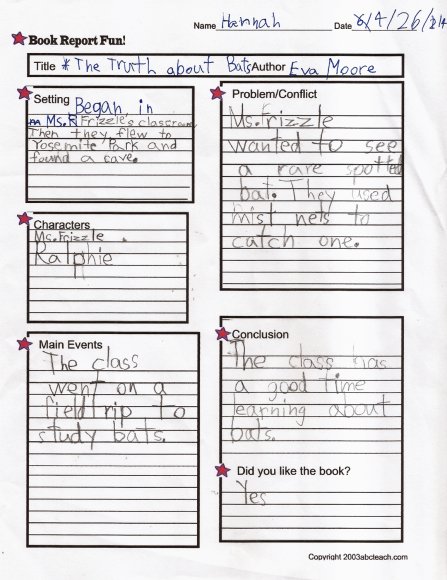 Name Hannah Date 6/4/26/
Book Report Fun!
Title *The Truth about Bats Author Eva Moore
Setting Began in
Ms. Frizzle's classroom
Then they flew to
Yosemite Park and
found a cave.
Characters
Ms. Frizzle
Ralphie
Main Events
The class
went on a
field trip to
study bats.
Problem/Conflict
Ms. Frizzle
wanted to see
a rare spotted
bat. They used
mist nets to
catch one.
Conclusion
The class has
a good time
learning about
bats.
Did you like the book?
Yes
Copyright 2003abcteach.com